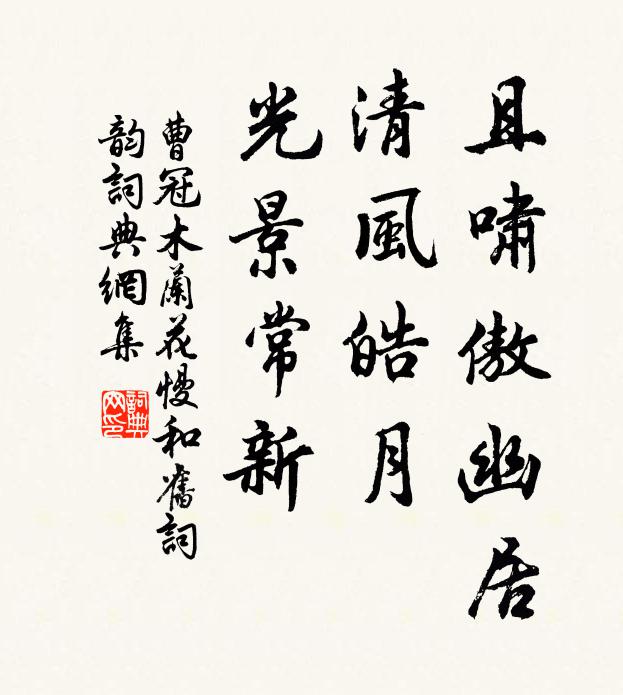 且嘯傲幽居
清風皓月
光景常新
曹冠木蘭花慢和舊詞
韵詞典網集
詞典
网印